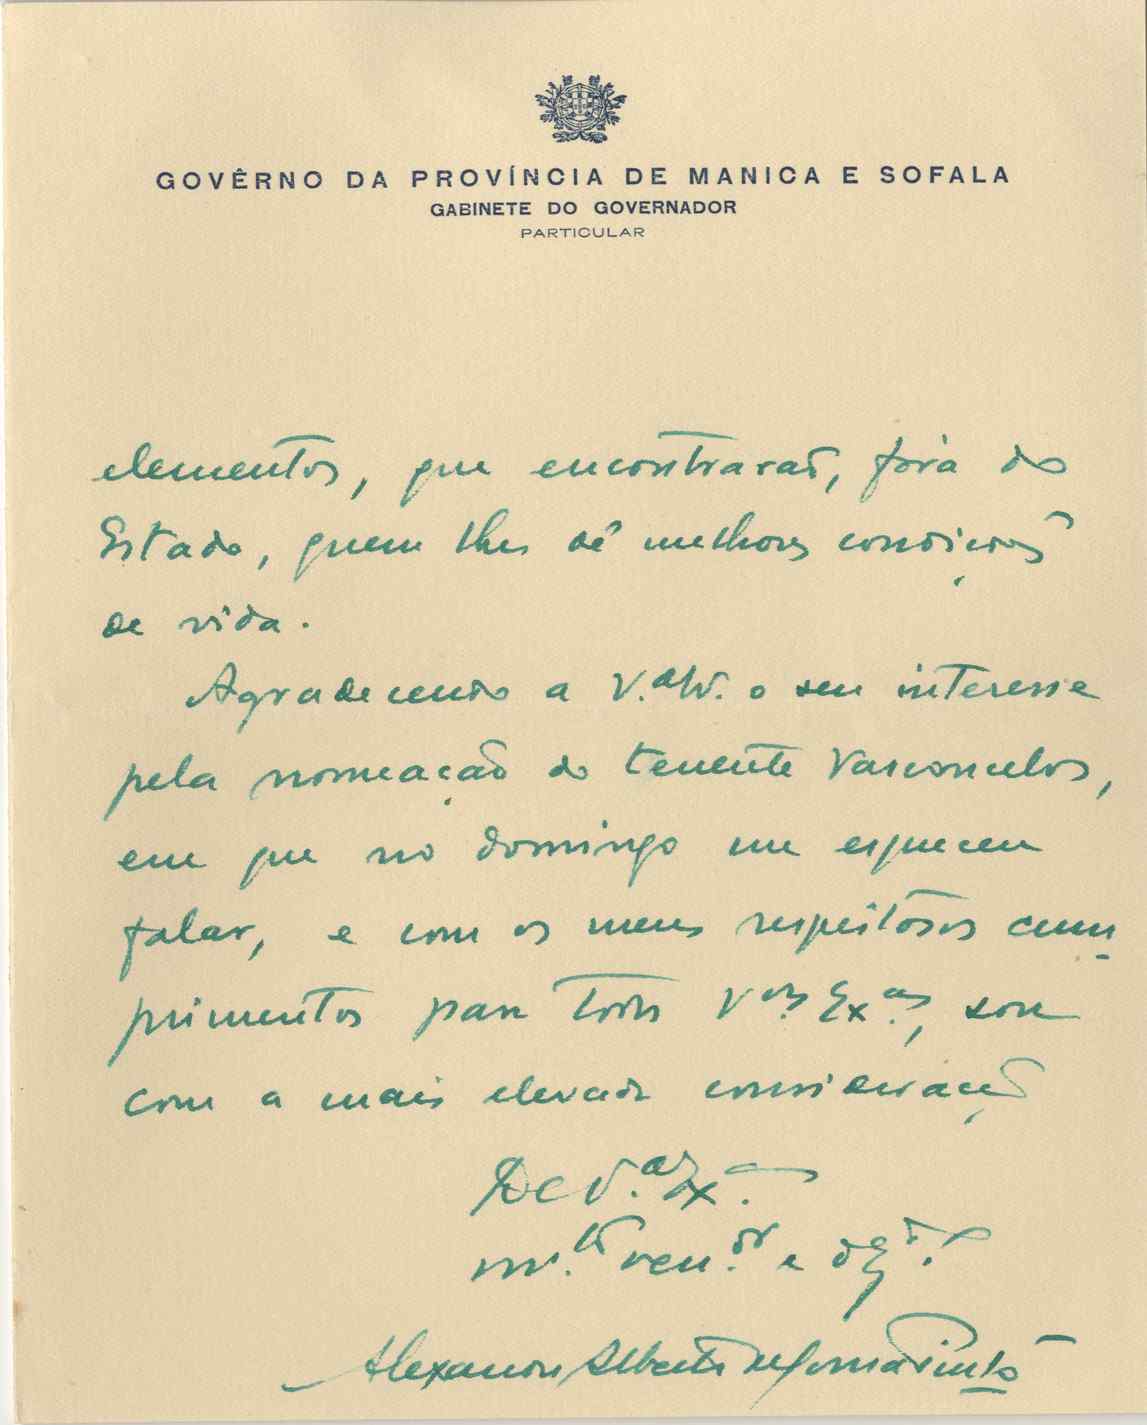 GOVÊRNO DA PROVÍNCIA DE MANICA E SOFALA
GABINETE DO GOVERNADOR
PARTICULAR
elementos, que encontrarão, fora do
Estado, quem lhes dê melhores condições
de vida.
Agradecendo a V.ª o seu interesse
pela nomeação do tenente Vasconcelos,
em que no domingo me esqueceu
falar, e com os meus respeitosos cum
primentos para todos V.as Ex.as, sou
com a mais elevada consideração
De V.ª Ex.ª
m.to ven.or e
Alexandre Alberto de Sousa Pinto